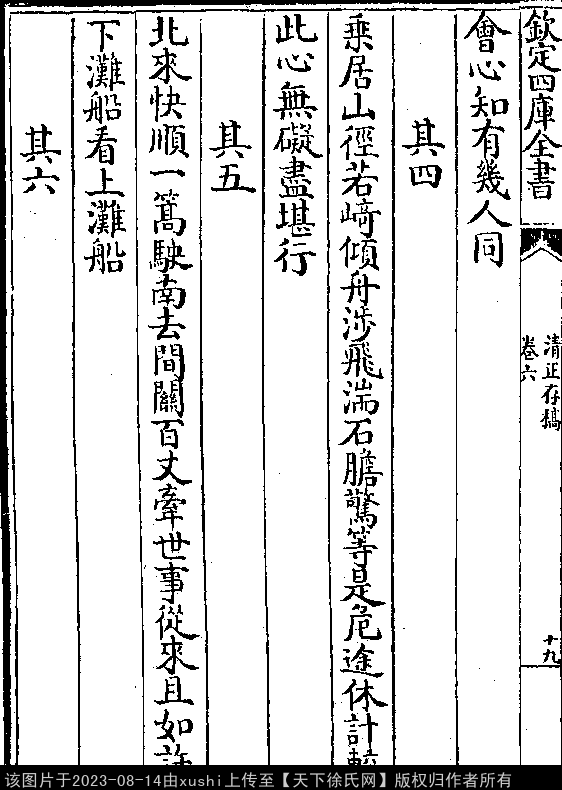 欽定四庫全書
清正存稿
卷六
十九
會心知有幾人同
其四
乗居山徑若﨑傾舟涉飛湍石膽驚等是危途休計較
此心無礙盡堪行
其五
北來快順一篙駛南去間關百丈牽世事從來且如許
下灘船看上灘船
其六
该图片于2023-08-14由xushi上传至【天下徐氏网】版权归作者所有